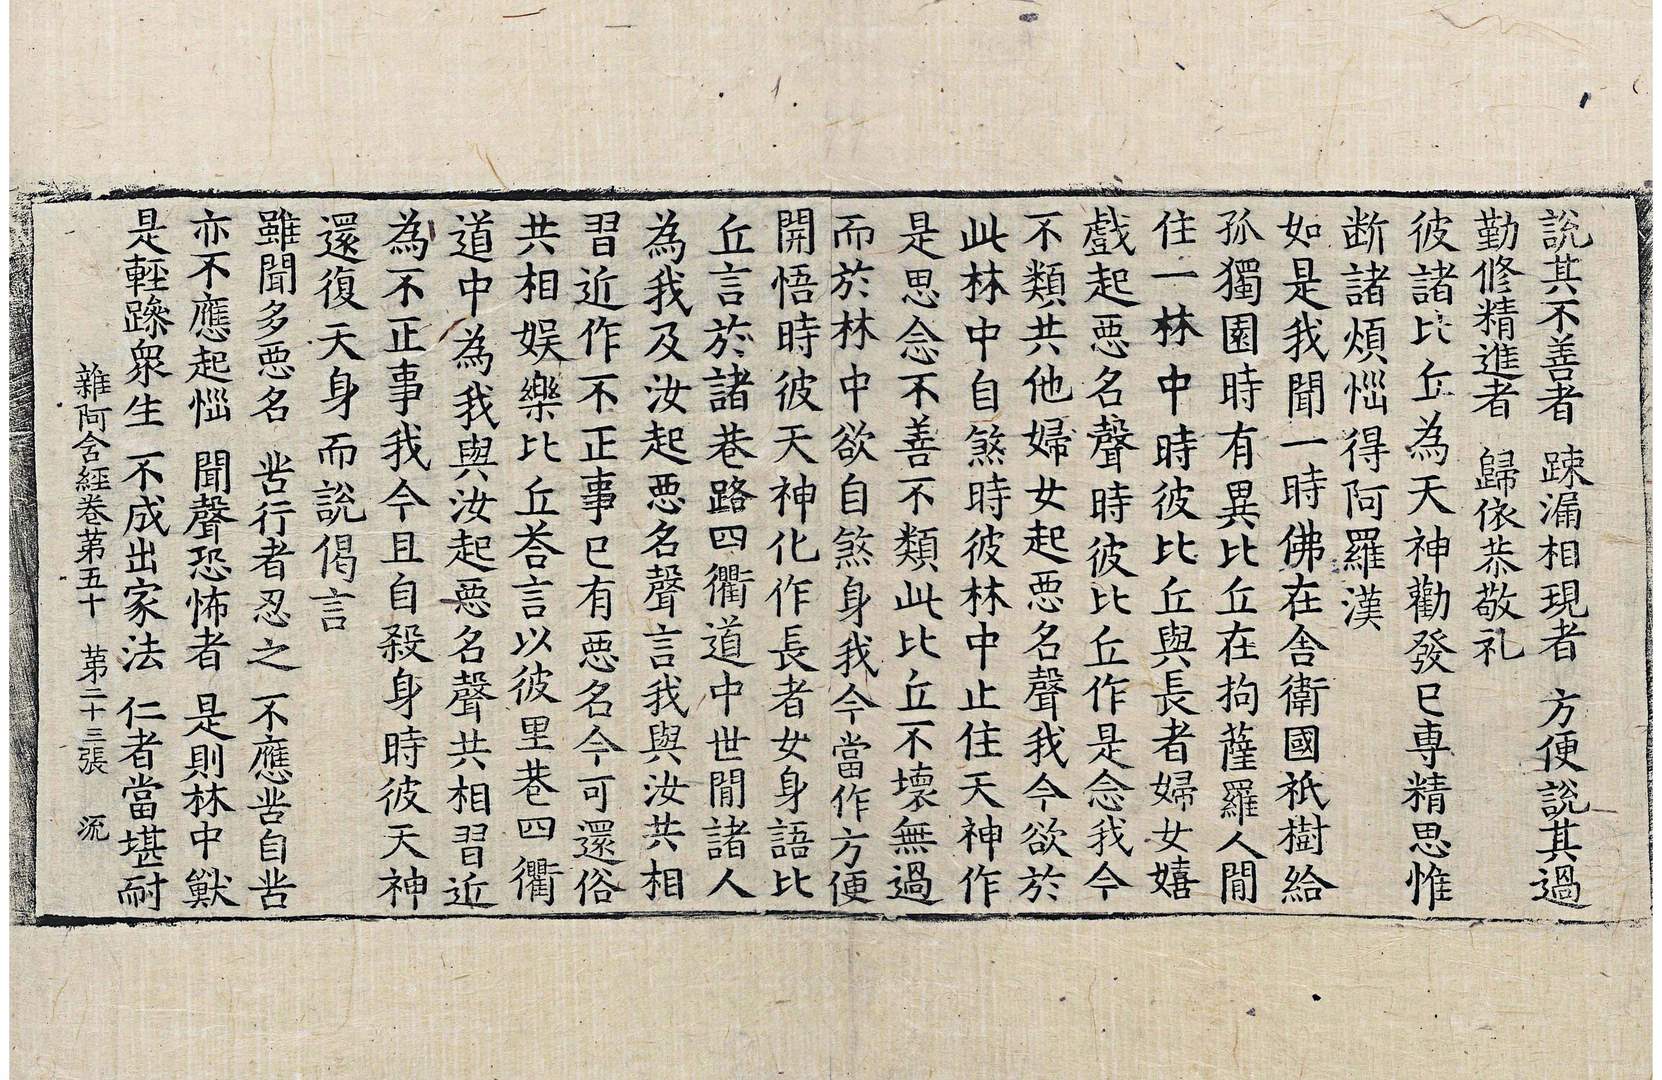 說其不善者 踈漏相現者 方便說其過
勤修精進者 歸依恭敬礼
彼諸比丘為天神勸發已專精思惟
断諸煩惱得阿羅漢
如是我聞一時佛在舍衛國祇樹給
孤獨園時有異比丘在拘薩羅人閒
住一林中時彼比丘與長者婦女嬉
戲起惡名聲時彼比丘作是念我今
不類共他婦女起惡名聲我今欲於
此林中自煞時彼林中止住天神作
是思念不善不類此比丘不壞無過
而於林中欲自煞身我今當作方便
開悟時彼天神化作長者女身語比
丘言於諸巷路四衢道中世閒諸人
為我及汝起惡名聲言我與汝共相
習近作不正事已有惡名今可還俗
共相娱樂比丘荅言以彼里巷四衢
道中為我與汝起惡名聲共相習近
為不正事我今且自殺身時彼天神
還復天身而說偈言
雖聞多惡名 苦行者忍之 不應苦自苦
亦不應起惱 聞聲恐怖者 是則林中獸
是輕躁衆生 不成出家法 仁者當堪耐
雜阿含經卷苐五十 苐二十三張 㳘